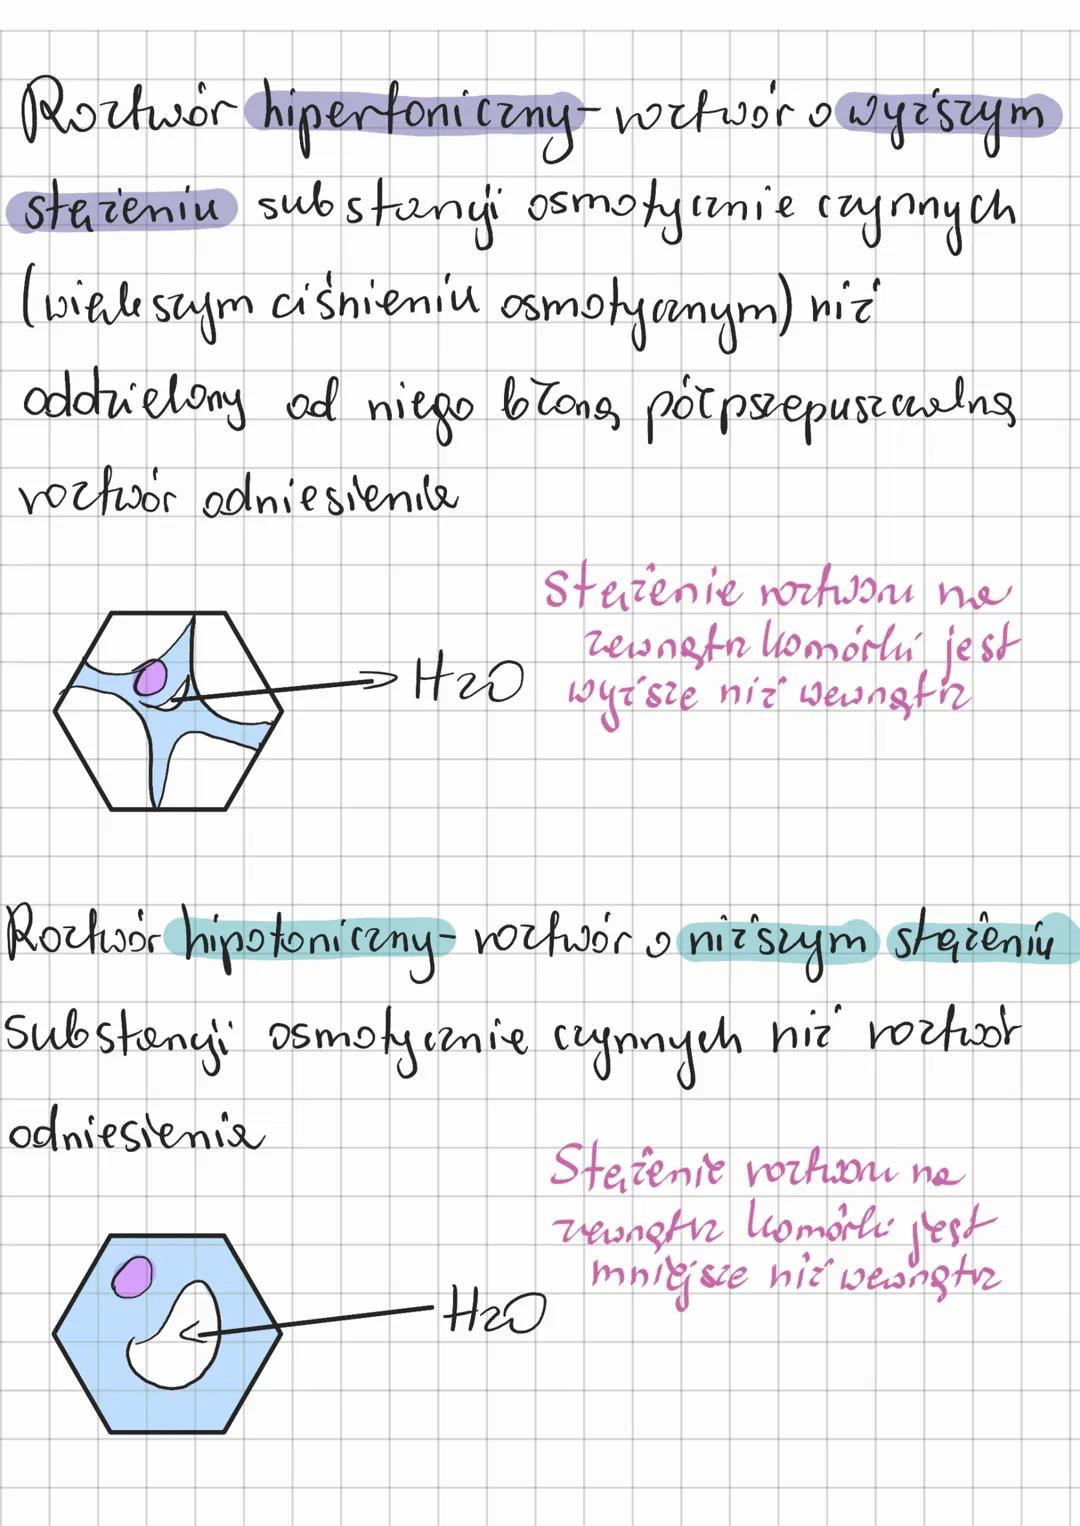 Roztwór hipertoniczny - roztwór o wyższym
stężeniu substancji osmotycznie czynnych
(większym ciśnieniu osmotycznym) niż
oddzielony od niego błoną półpszepuszczalną
roztwór odniesienia
Stężenie roztworu na
zewnątrz komórki jest
wyższe niż wewnątrz
H2O
Roztwór hipotoniczny - roztwór o niższym stężeniu
Substancji osmotycznie czynnych niż roztwór
odniesienia
Stężenie roztworu na
zewnątrz komórki jest
mniejsze niż wewnątrz
H2O